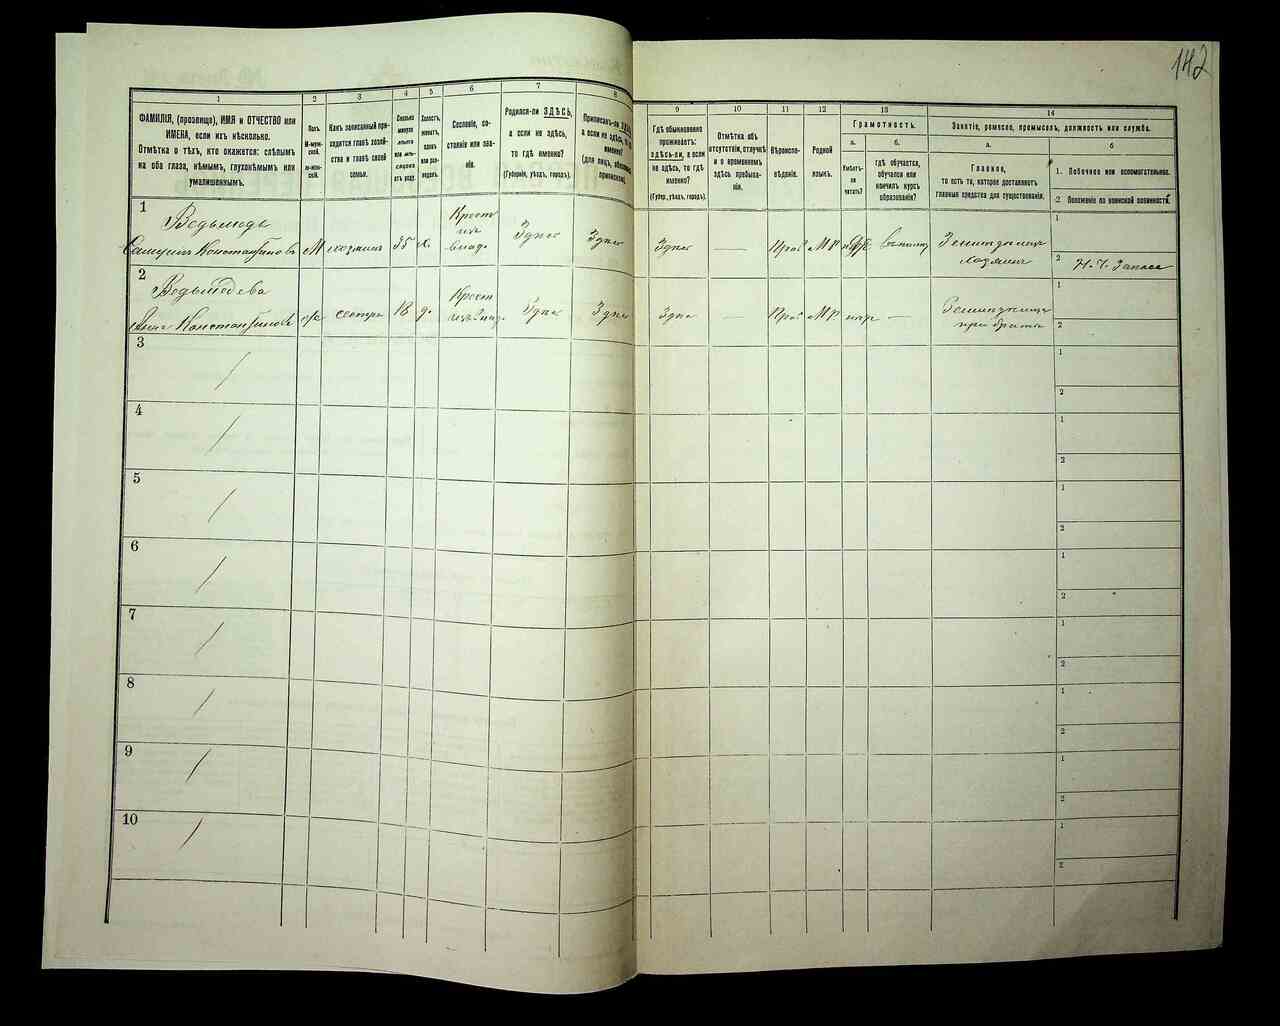 142
1
2
3
4
5
6
7
8
9
10
11
12
13
14
ФАМИЛІЯ, (прозвище), ИМЯ и ОТЧЕСТВО или
ИМЕНА, если ихъ нѣсколько.
Отмѣтка о тѣхъ, кто окажется: слѣпымъ
на оба глаза, нѣмымъ, глухонѣмымъ или
умалишеннымъ.
Полъ.
М-муж-
ской.
ж-жен-
ской.
Какъ записанный при-
ходится главѣ хозяй-
ства и главѣ своей
семьи.
Сколько
минуло
лѣтъ
или мѣ-
сяцевъ
отъ роду.
Холостъ,
женатъ,
вдовъ
или раз-
веденъ.
Сословіе, со-
стояніе или зва-
ніе.
Родился-ли ЗДѢСЬ,
а если не здѣсь,
то гдѣ именно?
(Губернія, уѣздъ, городъ).
Приписанъ-ли
а если не здѣсь,
именно?
(для лицъ,
Гдѣ обыкновенно
проживаетъ:
здѣсь-ли, а если
не здѣсь, то гдѣ
именно?
(Губер., уѣздъ, городъ).
Отмѣтка объ
отсутствіи, отлучкѣ
и о временномъ
здѣсь пребыва-
ніи.
Вѣроиспо-
вѣданіе.
Родной
языкъ.
Грамотность.
а.
Умѣетъ-
ли
читать?
б.
гдѣ обучается,
обучался или
кончилъ курсъ
образованія?
Занятіе, ремесло, промыселъ, должность или служба.
а.
Главное,
то есть то, которое доставляетъ
главныя средства для существованія.
б
1. Побочное или вспомогательное.
2 Положеніе по воинской повинности.
1
Ведьмедь
Самуилъ Константиновъ
М
хозяинъ
35
х.
Крест
изъ
владѣ
Здѣсь
Здѣсь
Здѣсь
—
Прав
МР
Земледѣлецъ
хозяинъ
1
2
Н. Ч. Запаса
2
Ведьмедева
Анна Константинова
ж
сестра
18
д.
Крест
Здѣсь
Здѣсь
Здѣсь
—
Прав
МР
нѣтъ
—
Земледѣлица
при братѣ
1
2
3
1
2
4
1
2
5
1
2
6
1
2
7
1
2
8
1
2
9
1
2
10
1
2